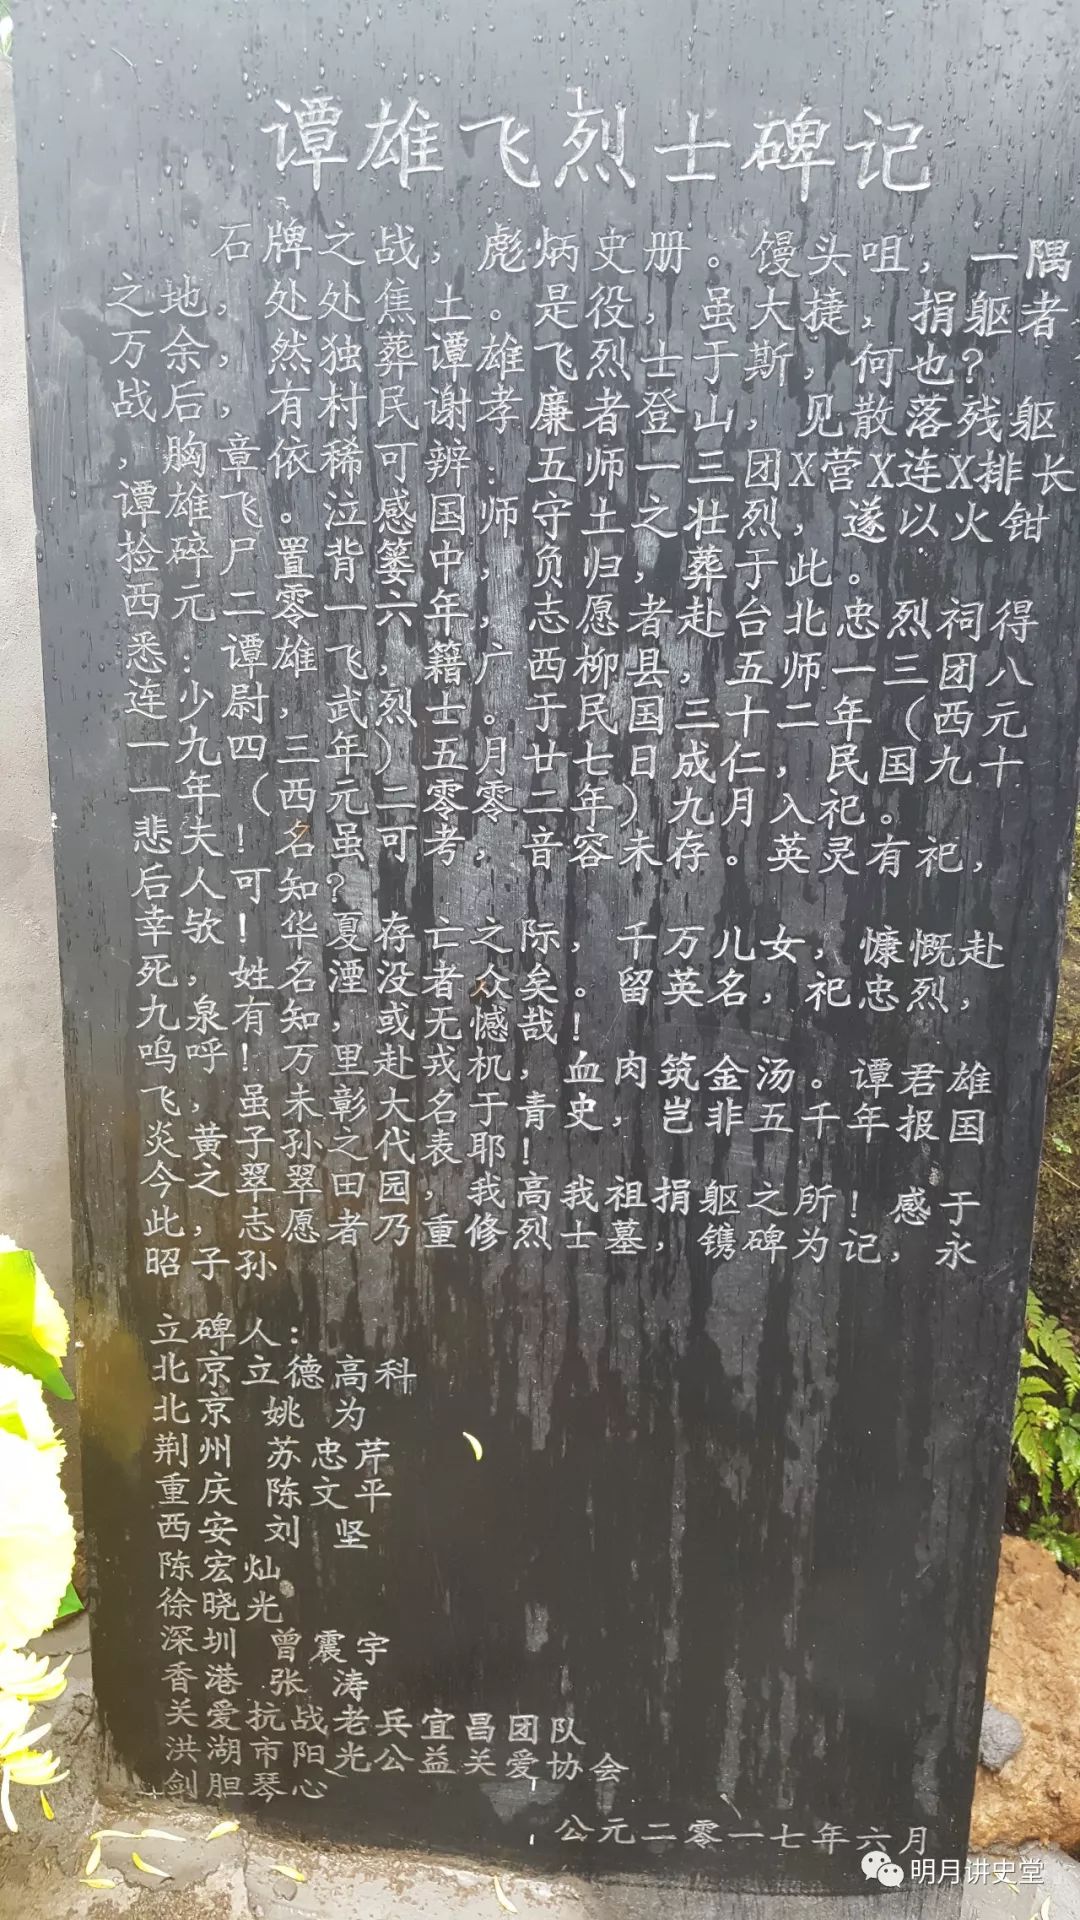 谭雄飞烈士碑记
石牌之战，彪炳史册。馒头咀，一隅
之地，处处焦土。是役，虽大捷，捐躯者
万余，然独葬谭雄飞烈士于斯，何也？
战后，有村民谢孝廉者登山，见散落残躯
，胸章依稀可辨：五师一三团X营X连X排长
谭雄飞。泣感国师守土之壮烈，遂以火钳
捡碎尸置背篓中，负归，葬于此。
西元二零一六年，志愿者赴台北忠烈祠得
悉：谭雄飞，籍广西柳县，五师一三团八
连少尉，武烈士。于民国三十二年（西元
一九四三年）五月廿七日成仁，民国九十
一年（西元二零零二年）九月入祀。
悲夫！名虽可考，音容未存。英灵有祀，
后人可知？
幸欤！华夏存亡之际，千万儿女，慷慨赴
死，姓名湮没者众矣。留英名，祀忠烈，
九泉有知，或无憾哉！
呜呼！万里赴戎机，血肉筑金汤。谭君雄
飞，虽未彰大名于青史，岂非五千年报国
炎黄子孙之代表耶！
今之翠翠田园，我高我祖捐躯之所！感于
此，志愿者乃重修烈士墓，镌碑为记，永
昭子孙
立碑人：
北京立德高科
北京 姚为
荆州 苏忠芹
重庆 陈文平
西安 刘坚
陈宏灿
徐晓光
深圳 曾震宇
香港 张涛
关爱抗战老兵宜昌团队
洪湖市阳光公益关爱协会
剑胆琴心
公元二零一七年六月
明月讲史堂